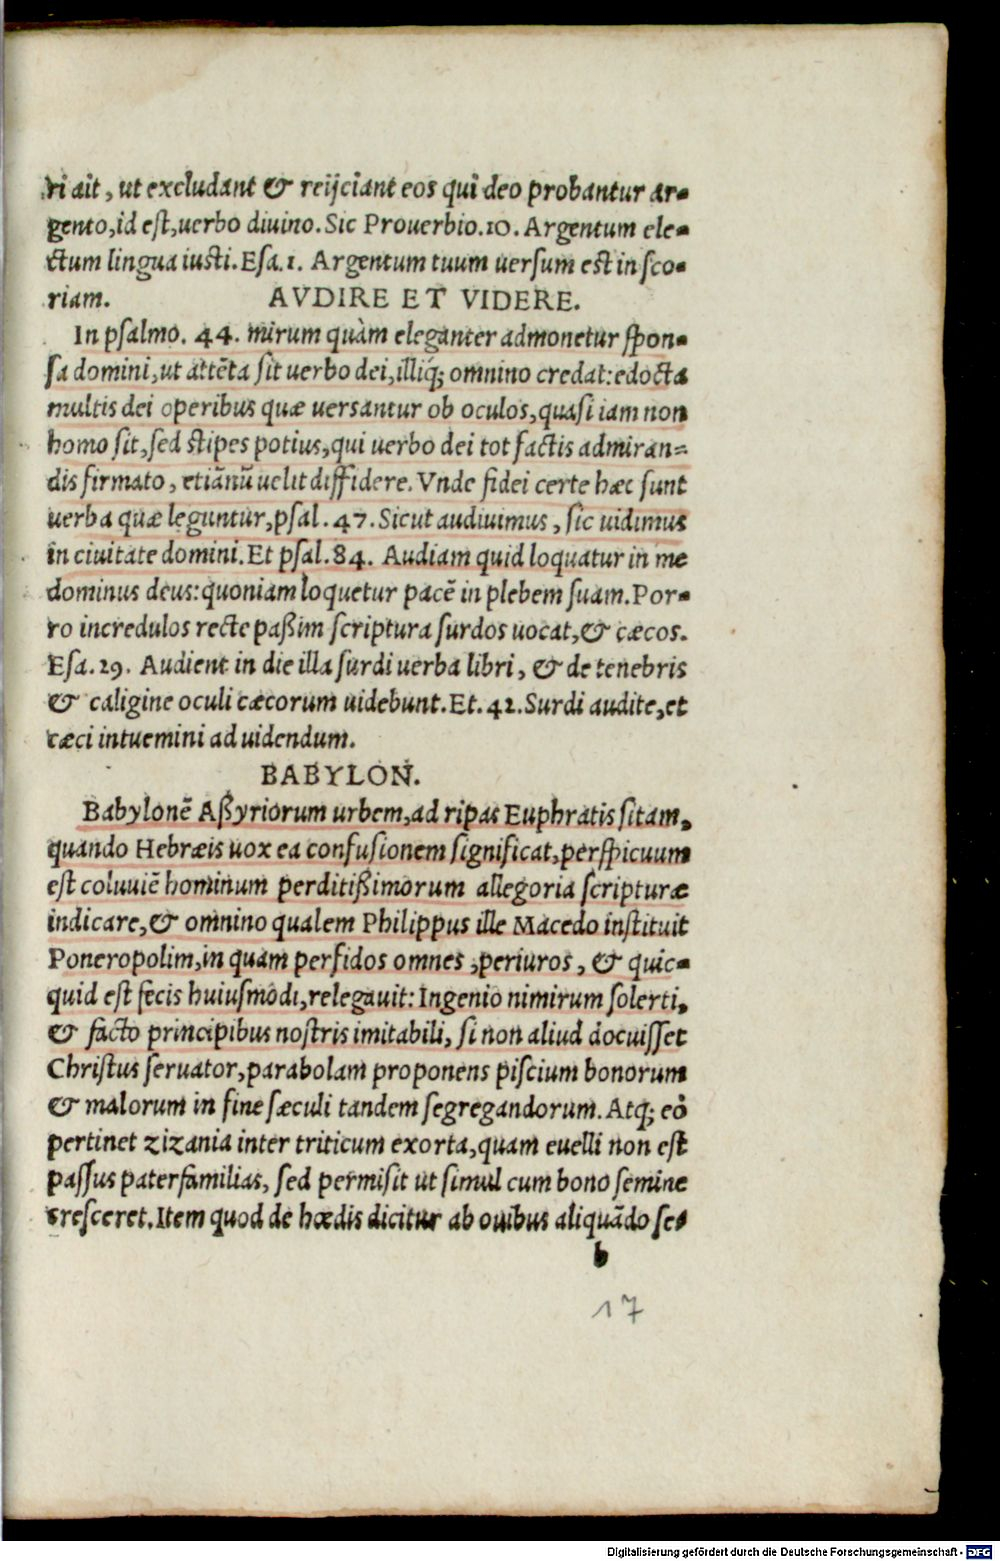 ri ait, ut excludant & reijciant eos qui deo probantur ar-
gento, id est, uerbo diuino. Sic Prouerbio. 10. Argentum ele-
ctum lingua iusti. Esa. 1. Argentum tuum uersum est in sco-
riam. AVDIRE ET VIDERE.
In psalmo. 44. mirum quàm eleganter admonetur spon-
sa domini, ut attẽta sit uerbo dei, illiq; omnino credat: edocta
multis dei operibus quæ uersantur ob oculos, quasi iam non
homo sit, sed stipes potius, qui uerbo dei tot factis admiran-
dis firmato, etiãnũ uelit diffidere. Vnde fidei certe hæc sunt
uerba quæ leguntur, psal. 47. Sicut audiuimus, sic uidimus
in ciuitate domini. Et psal. 84. Audiam quid loquatur in me
dominus deus: quoniam loquetur pacẽ in plebem suam. Por-
ro incredulos recte paßim scriptura surdos uocat, & cæcos.
Esa. 29. Audient in die illa surdi uerba libri, & de tenebris
& caligine oculi cæcorum uidebunt. Et. 42. Surdi audite, et
cæci intuemini ad uidendum.
BABYLON.
Babylonẽ Aßyriorum urbem, ad ripas Euphratis sitam,
quando Hebræis uox ea confusionem significat, perspicuum
est coluuiẽ hominum perditißimorum allegoria scripturæ
indicare, & omnino qualem Philippus ille Macedo instituit
Poneropolim, in quam perfidos omnes, periuros, & quic-
quid est fecis huiusmodi, relegauit: Ingenio nimirum solerti,
& facto principibus nostris imitabili, si non aliud docuisset
Christus seruator, parabolam proponens piscium bonorum
& malorum in fine sæculi tandem segregandorum. Atq; eò
pertinet zizania inter triticum exorta, quam euelli non est
passus paterfamilias, sed permisit ut simul cum bono semine
cresceret. Item quod de hœdis dicitur ab ouibus aliquãdo se-
b
17
Digitalisierung gefördert durch die Deutsche Forschungsgemeinschaft - DFG